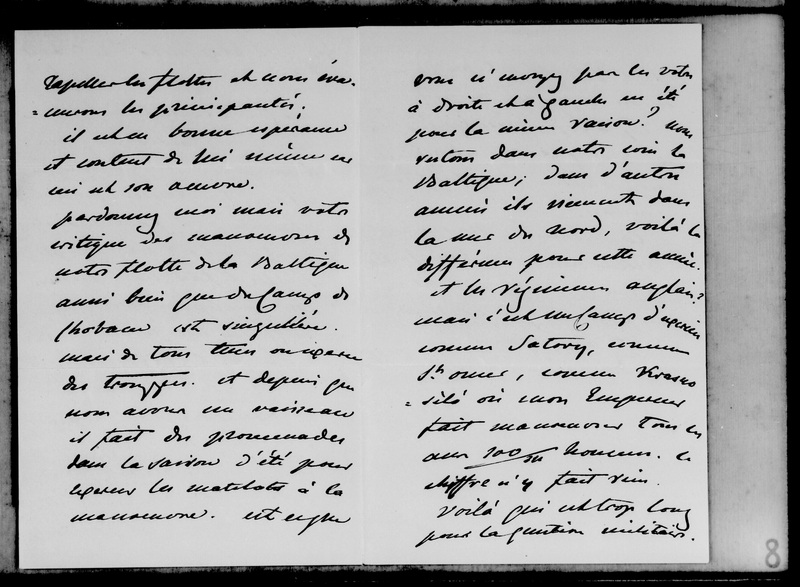 rapeller les flottes et nous éva-
=cuerons les principautés.
il est en bonne espérance
et content de lui même
et son œuvre.
pardonnez moi mais votre
critique des manœuvres de
notre flotte de la Baltique
aussi bien que du Camp de
Chobam est singulière.
mais de tous tems on exerce
des trouppes. et depuis que
nous avons un vaisseau
il fait des promenades
dans la saison d'été pour
exercer les matelots à la
manœuvre. est ce que
vous n'envoyez pas les votres
à droite et à gauche en été
pour la même raison? nous
restons dans notre coin la
Baltique; dans d'autres
années ils viennent dans
la mer du Nord, voilà la
différence pour cette année.
et les régimens anglais?
mais c'est un Camp d'exercice
comme Satory, comme
St omer, comme Krasno
=sélo où mon Empereur
fait manœuvrer tous les
ans 100/m hommes. le
chiffre n'y fait rien.
voilà qui est trop long
pour la question militaire.
8